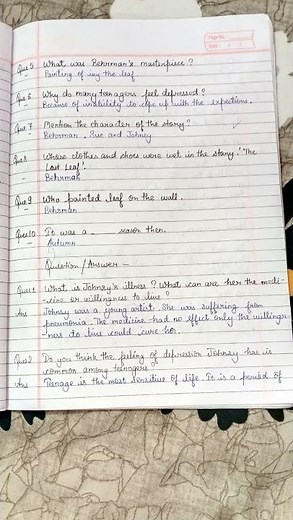 Que 5 What was Behrman's masterpiece?
Painting of ivy the leaf.
Que 6 Why do many teanagers feel depressed?
Because of inability to cope up with the expections.
Que 7 Mention the character of the story?
Behrman, Sue and Johnsy
Que 8 Whose clothes and shoes were wet in the story 'The
Last Leaf'.
Behrman
Que 9 Who painted leaf on the wall.
Behrman
Que 10 It was a ______ season then.
Autumn
Question/Answer -
Que 1 What is Johnsy's illness? What can are her the medi-
-cine or willingness to live
Ans Johnsy was a young artist. She was suffering from
pneumonia. The medicine had no effect only the willingn-
-ness to live could cure her.
Que 2 Do you think the feeling of depression Johnsy has is
common among teenagers
Ans Teenage is the most sensitive of life. It is a period of